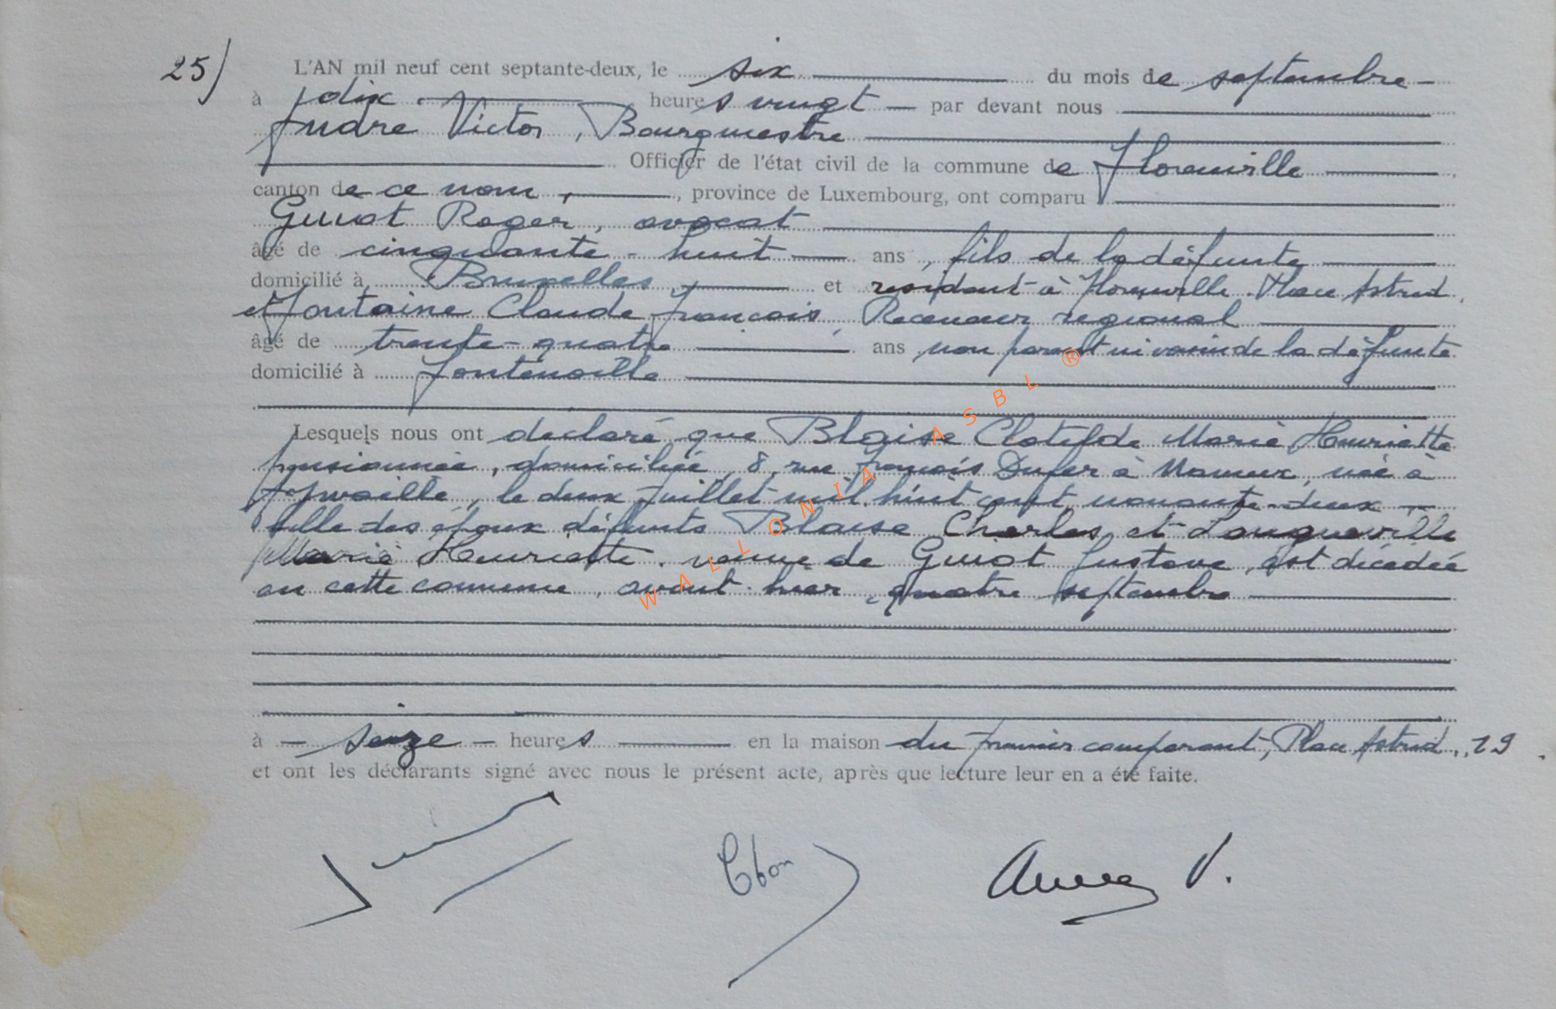 25) L'AN mil neuf cent septante-deux, le six du mois de septembre
à dix heures vingt par devant nous
André Victor, Bourgmestre
Officier de l'état civil de la commune de Florenville
canton de ce nom, province de Luxembourg, ont comparu
Guiot Roger, avocat
âgé de cinquante-huit ans, fils de la défunte
domicilié à Bruxelles et résidant à Florenville Place Astrid,
et Fontaine Claude François, Receveur régional
âgé de trente-quatre ans non parent ni voisin de la défunte
domicilié à Fontenoille
Lesquels nous ont déclaré que Blaise Clotilde Marie Henriette
pensionnée, domiciliée, 8, rue François Dufer à Namur, née à
le deux juillet mil huit cent nonante-deux
fille des époux défunts Blaise Charles et Longueville
Marie Henriette, veuve de Guiot Gustave, est décédée
en cette commune, avant-hier, quatre septembre
à seize heures en la maison du premier comparant, Place Astrid, 19
et ont les déclarants signé avec nous le présent acte, après que lecture leur en a été faite.
V.
WALLONIA ASBL ®